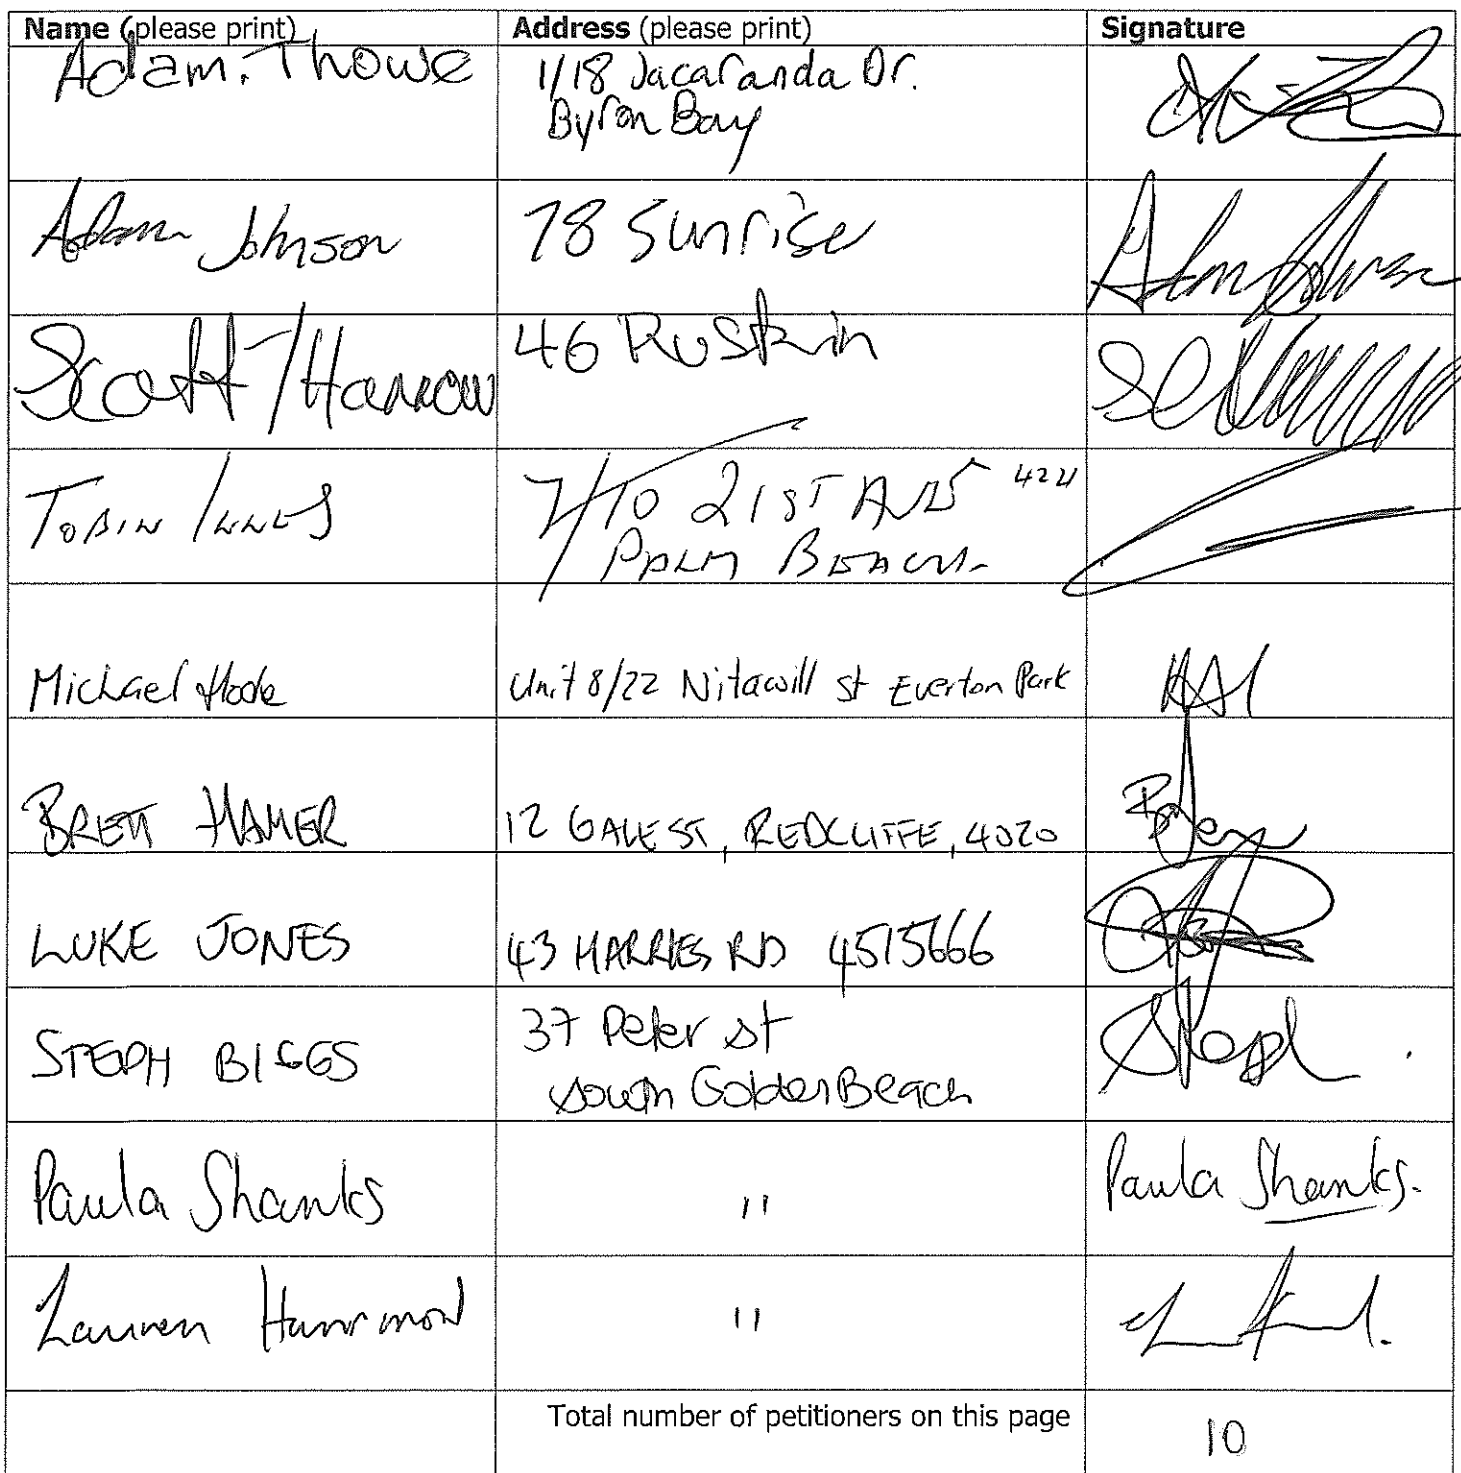 Name (please print) Address (please print) Signature
Adam. Thowe 1/18 Jacaranda Dr.
Byron Bay
Adam Johnson 78 Sunrise
Scott Harrow 46 Ruskin
TOBIN INNES 7/10 21ST AVE 4221
PALM BEACH
Michael Unit 8/22 Nitawill st Everton Park
BRETT HAMER 12 GALE ST, REDCLIFFE, 4020
LUKE JONES 43 HARRIES RD 4515666
STEPH BIGGS 37 Peter st
south Golden Beach
Paula Shanks " Paula Shanks.
Lauren Hammond "
Total number of petitioners on this page 10